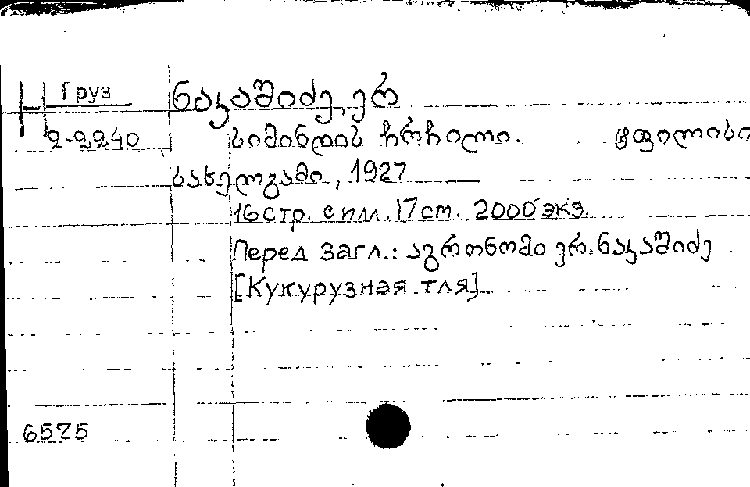 Н Груз
2-2240
ნაკაშიძე, ერ
სიმინდის ჩრჩილი. ტფილისი
სახელგამი, 1927
16 стр. с илл. 17 см. 2000 экз.
Перед загл.: აგრონომი ერ. ნაკაშიძე
[Кукурузная тля]
6575